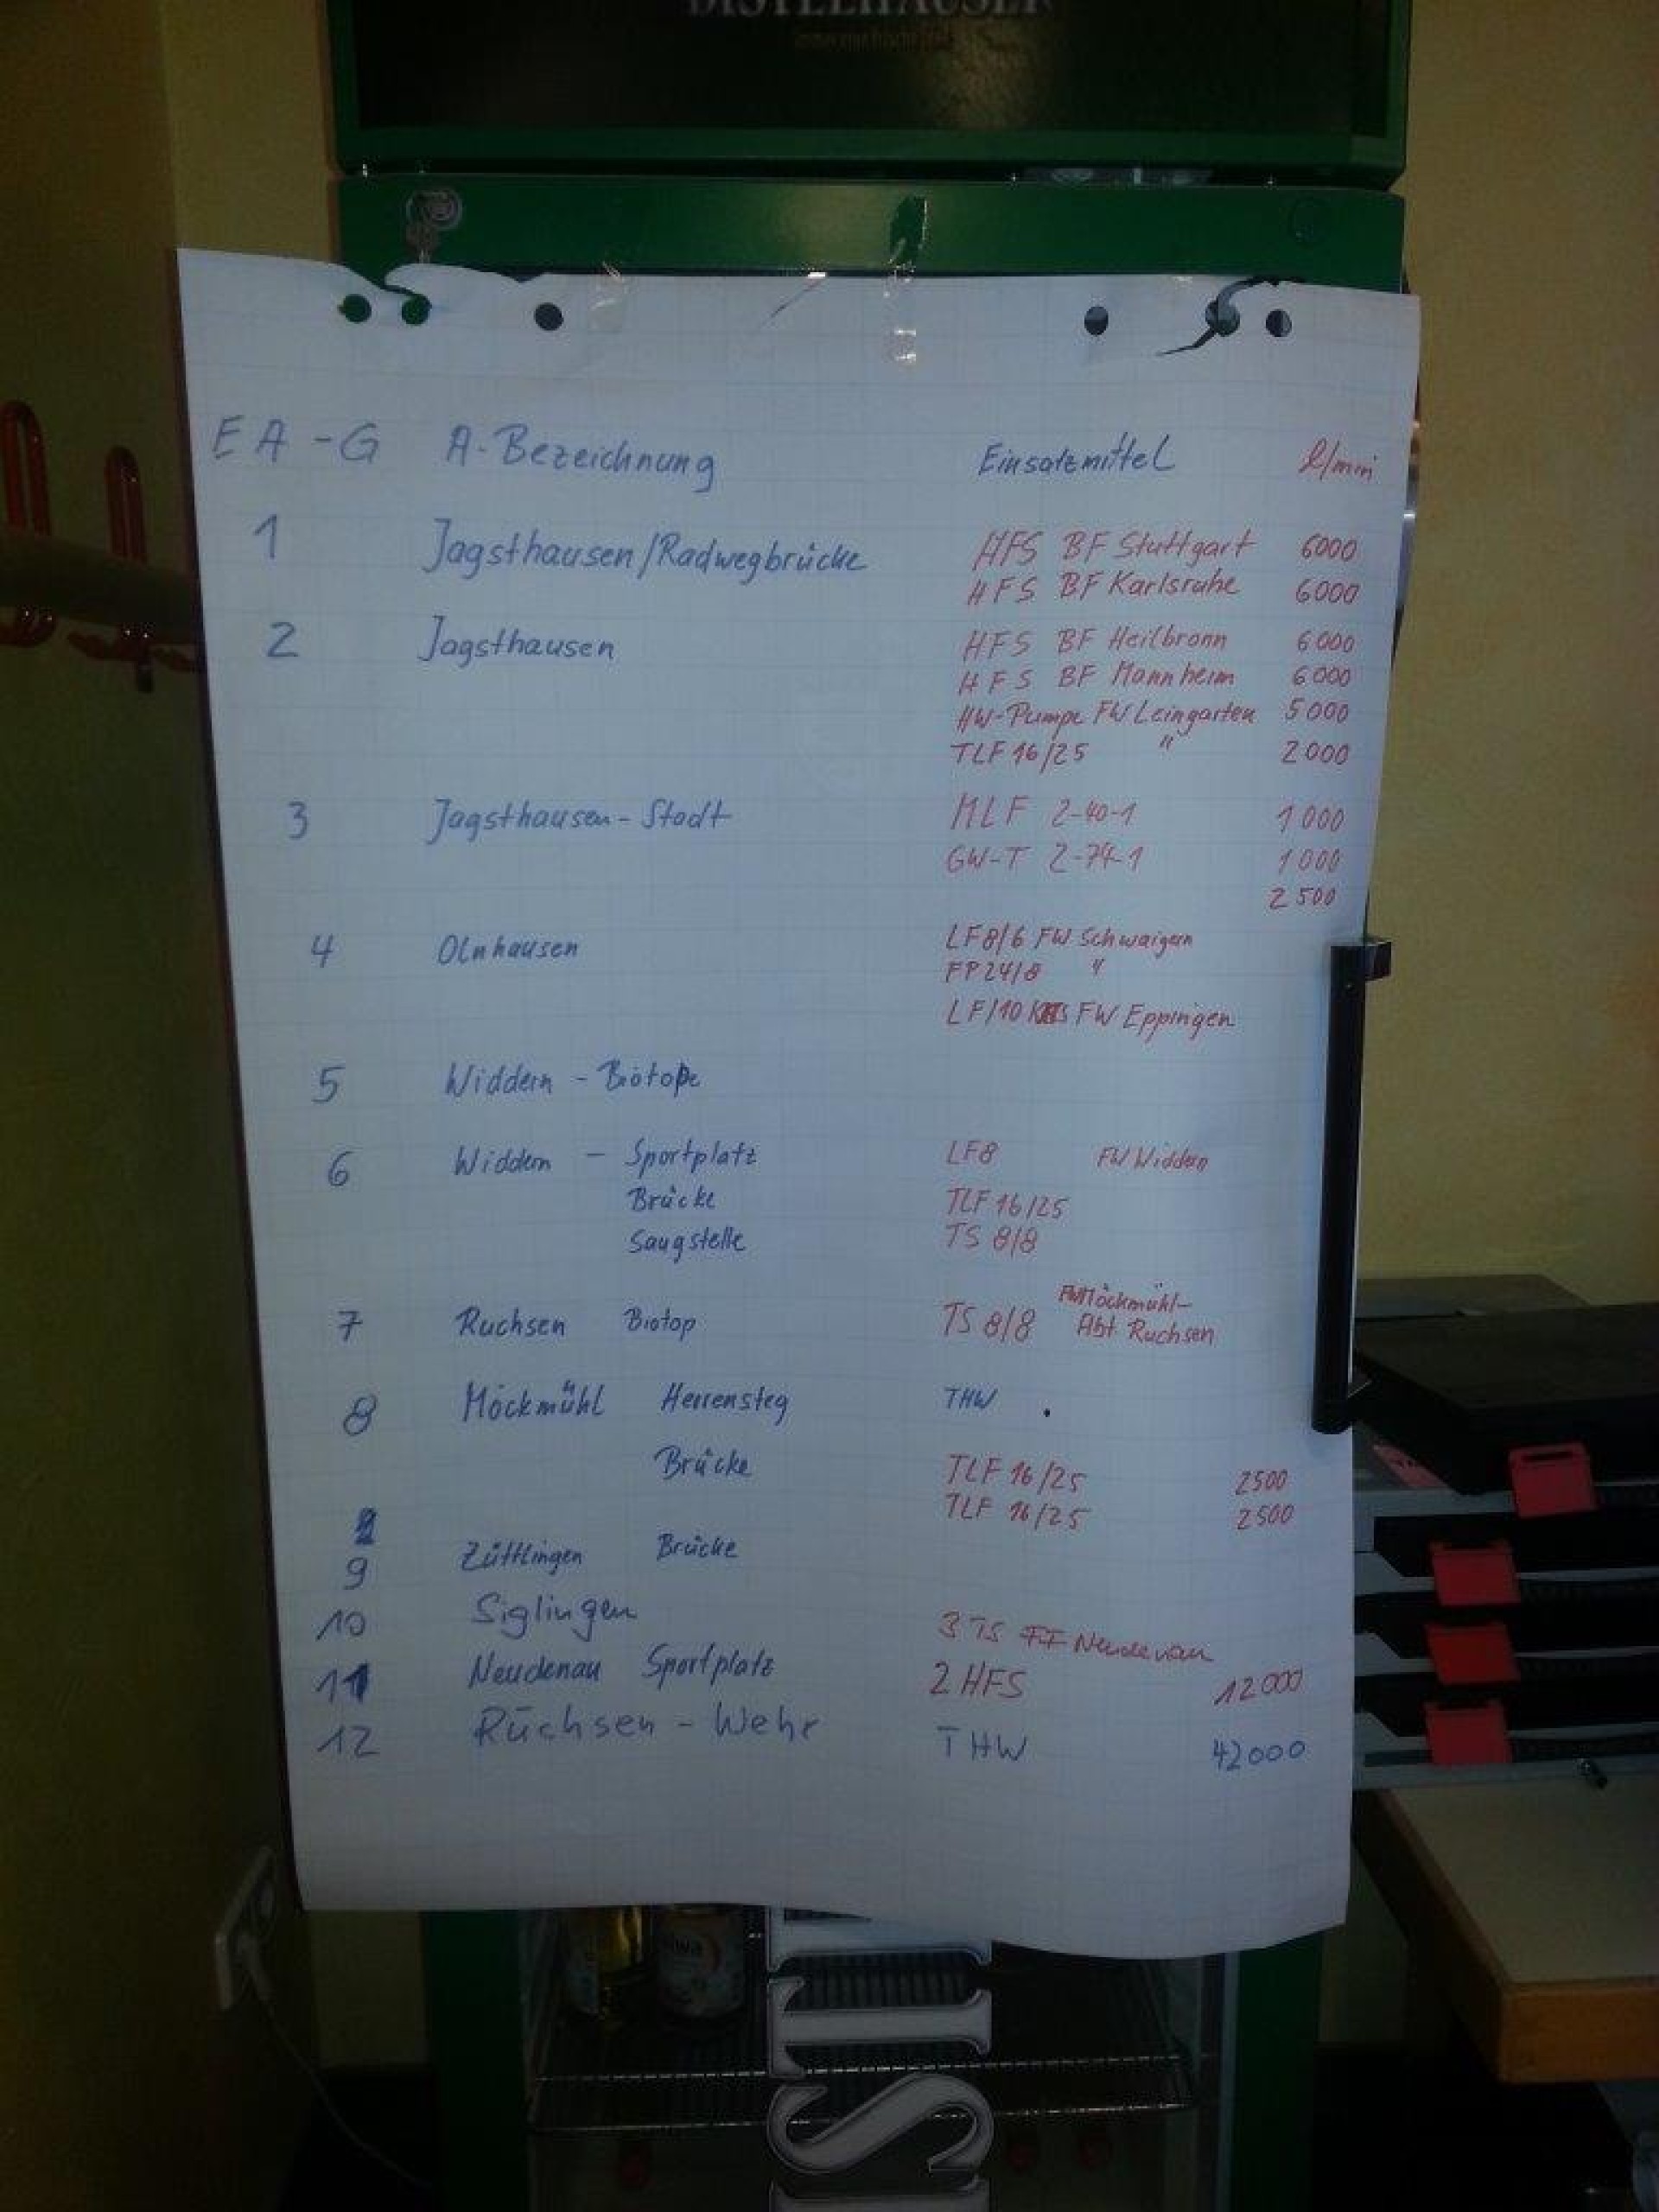 DISTELHÄUSER
EA-G A-Bezeichnung Einsatzmittel l/min
1 Jagsthausen/Radwegbrücke HFS BF Stuttgart 6000
HFS BF Karlsruhe 6000
2 Jagsthausen HFS BF Heilbronn 6000
HFS BF Mannheim 6000
HW-Pumpe FW Leingarten 5000
TLF 16/25 " 2000
3 Jagsthausen-Stadt MLF 2-40-1 1000
GW-T 2-74-1 1000
2500
4 Olnhausen LF8/6 FW Schwaigern
FP24/8 "
LF/10 FW Eppingen
5 Widdern - Biotope
6 Widdern - Sportplatz LF8 FW Widdern
Brücke TLF 16/25
Saugstelle TS 8/8
FW Möckmühl-
7 Ruchsen Biotop TS 8/8 Abt Ruchsen
8 Möckmühl Herrensteg THW
Brücke TLF 16/25 2500
TLF 16/25 2500
9 Züttlingen Brücke
10 Siglingen 3 TS FF Neudenau
11 Neudenau Sportplatz 2 HFS 12000
12 Rüchsen - Wehr THW 42000